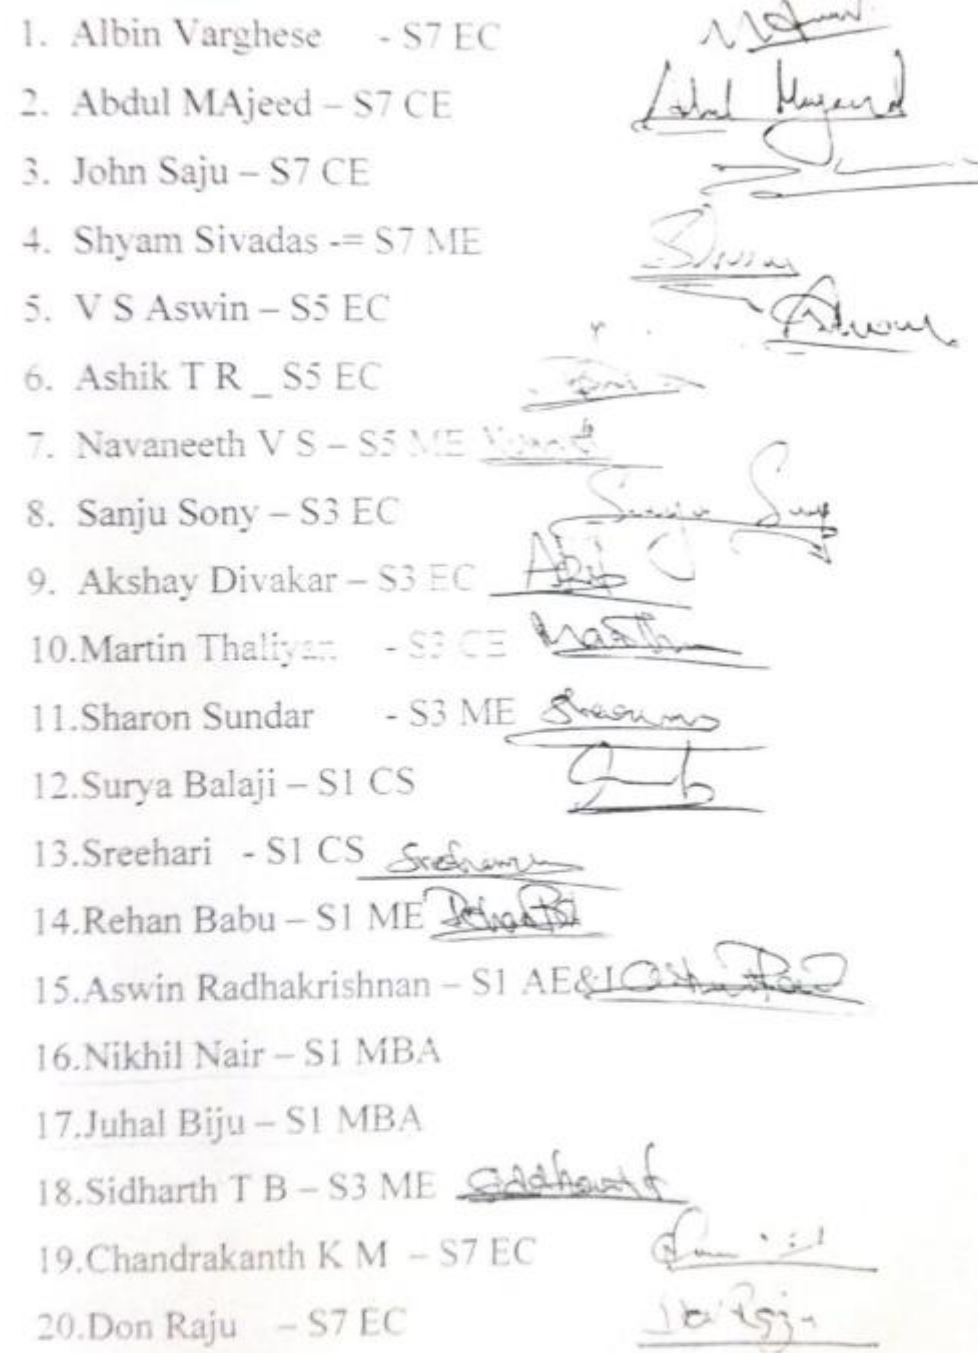 1. Albin Varghese - S7 EC
2. Abdul MAjeed – S7 CE
3. John Saju – S7 CE
4. Shyam Sivadas -= S7 ME
5. V S Aswin – S5 EC
6. Ashik T R _ S5 EC
7. Navaneeth V S – S5 ME
8. Sanju Sony – S3 EC Sanju Sony
9. Akshay Divakar – S3 EC
10.Martin Thaliyan - S3 CE
11.Sharon Sundar - S3 ME
12.Surya Balaji – S1 CS
13.Sreehari - S1 CS
14.Rehan Babu – S1 ME
15.Aswin Radhakrishnan – S1 AE&I
16.Nikhil Nair – S1 MBA
17.Juhal Biju – S1 MBA
18.Sidharth T B – S3 ME Siddharth
19.Chandrakanth K M – S7 EC
20.Don Raju – S7 EC Don Raju